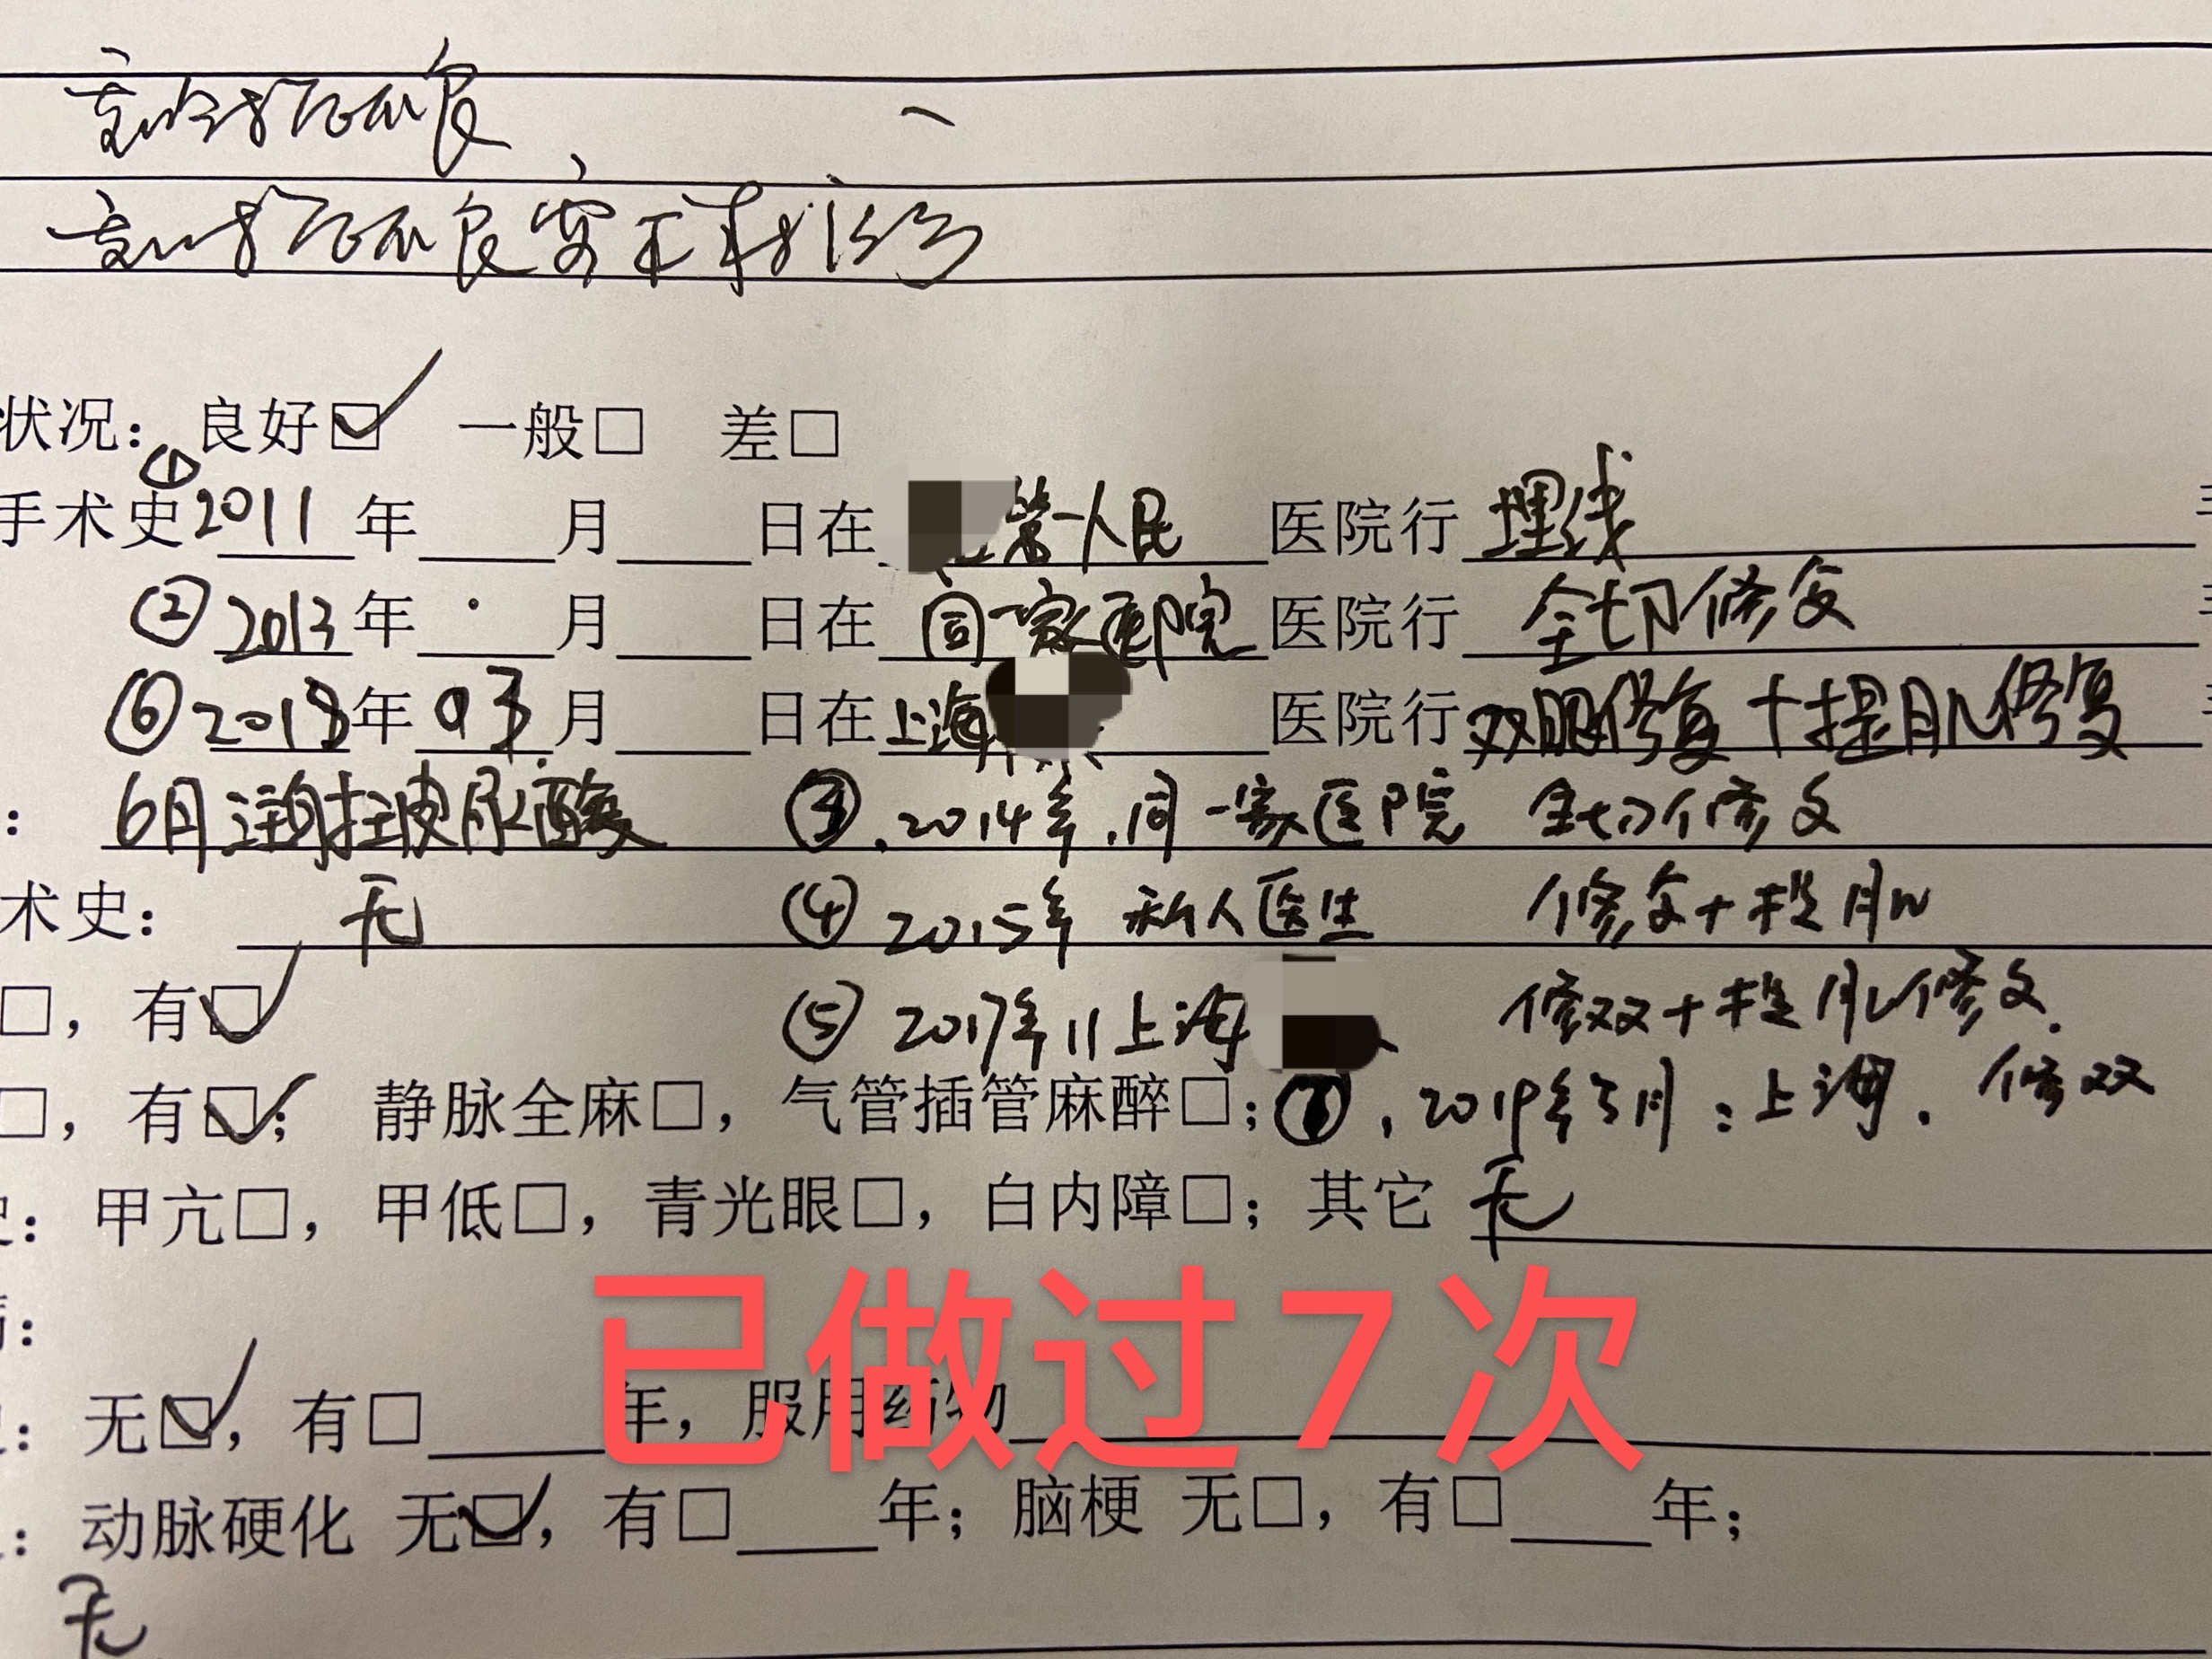 状况：良好☑ 一般□ 差□
手术史①2011年____月____日在 第一人民 医院行 埋线
②2013年____月____日在 同一家医院 医院行 全切修复
⑥2018年03月____日在 上海 医院行 双眼修复+提肌修复
： 6月注射 玻尿酸 ③.2014年.同一家医院 全切修复
术史： 无 ④2015年 私人医生 修复+提肌
□，有☑ ⑤2017年11上海 修双+提肌修复.
□，有☑； 静脉全麻□，气管插管麻醉□；⑦，2019年3月：上海. 修双
史：甲亢□，甲低□，青光眼□，白内障□；其它 无
已做过7次
：无☑，有□____年，服用药物
：动脉硬化 无☑，有□____年；脑梗 无□，有□____年；
无